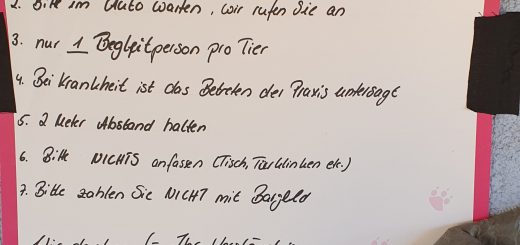 2. Bitte im Auto warten, wir rufen Sie an
3. nur 1 Begleitperson pro Tier
4. Bei Krankheit ist das Betreten der Praxis untersagt
5. 2 Meter Abstand halten
6. Bitte NICHTS anfassen (Tisch, Türklinken etc.)
7. Bitte zahlen Sie NICHT mit Bargeld